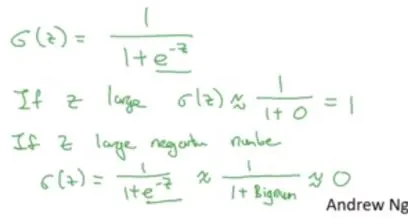 σ(z) = 1 / (1 + e^-z)
If z large σ(z) ≈ 1 / (1 + 0) = 1
If z large negative number
σ(z) = 1 / (1 + e^-z) ≈ 1 / (1 + Bignum) ≈ 0
Andrew Ng